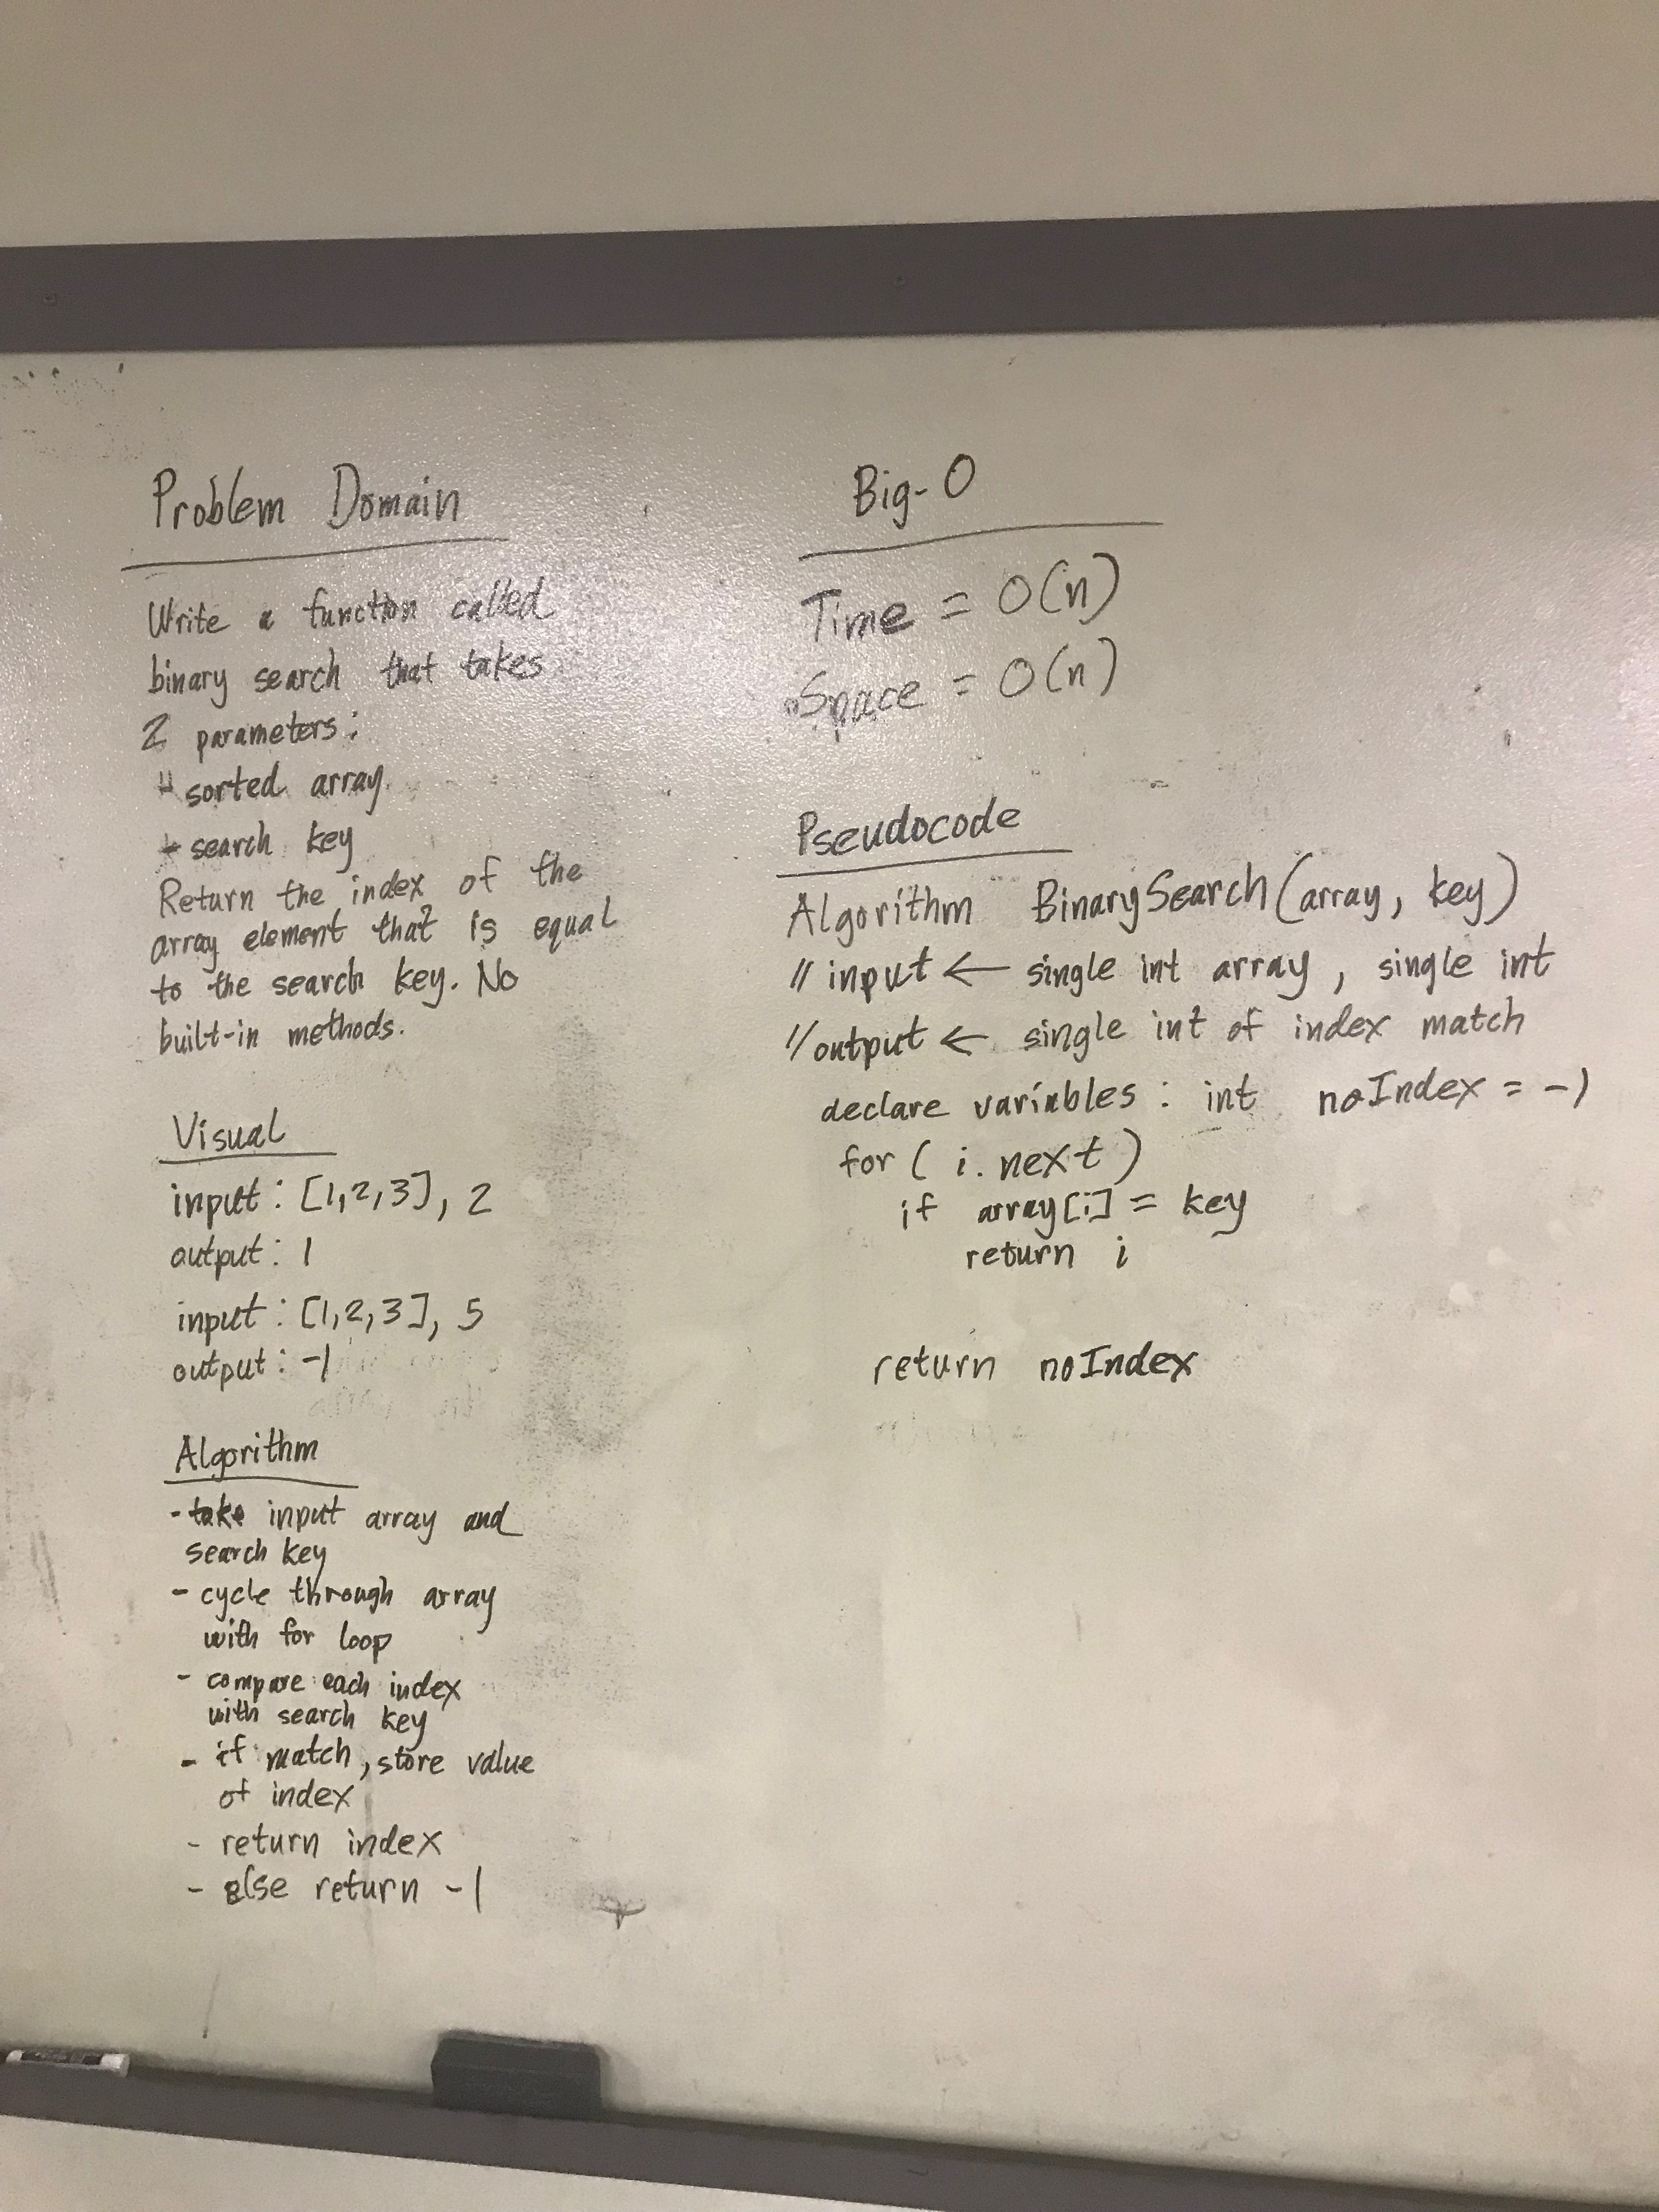 Problem Domain
Write a function called
binary search that takes
2 parameters:
sorted array
search key
Return the index of the
array element that is equal
to the search key. No
built-in methods.
Visual
input: [1,2,3], 2
output: 1
input: [1,2,3], 5
output: -1
Algorithm
-take input array and
search key
- cycle through array
with for loop
- compare each index
with search key
- if match, store value
of index
- return index
- else return -1
Big-O
Time = O(n)
Space = O(n)
Pseudocode
Algorithm BinarySearch(array, key)
// input ← single int array, single int
// output ← single int of index match
declare variables: int noIndex = -1
for ( i.next )
if array[i] = key
return i
return noIndex